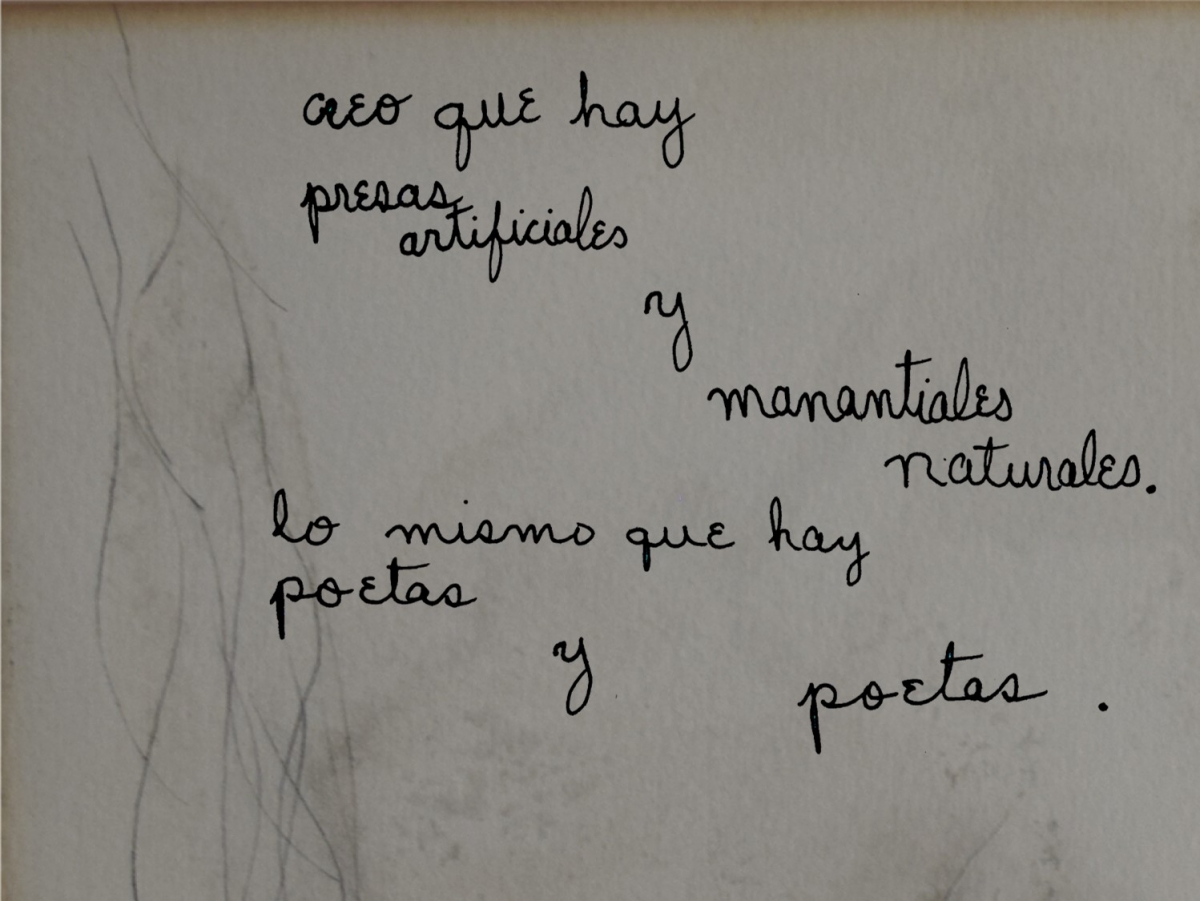 creo que hay
presas
artificiales
y
manantiales
naturales.
lo mismo que hay
poetas
y
poetas .